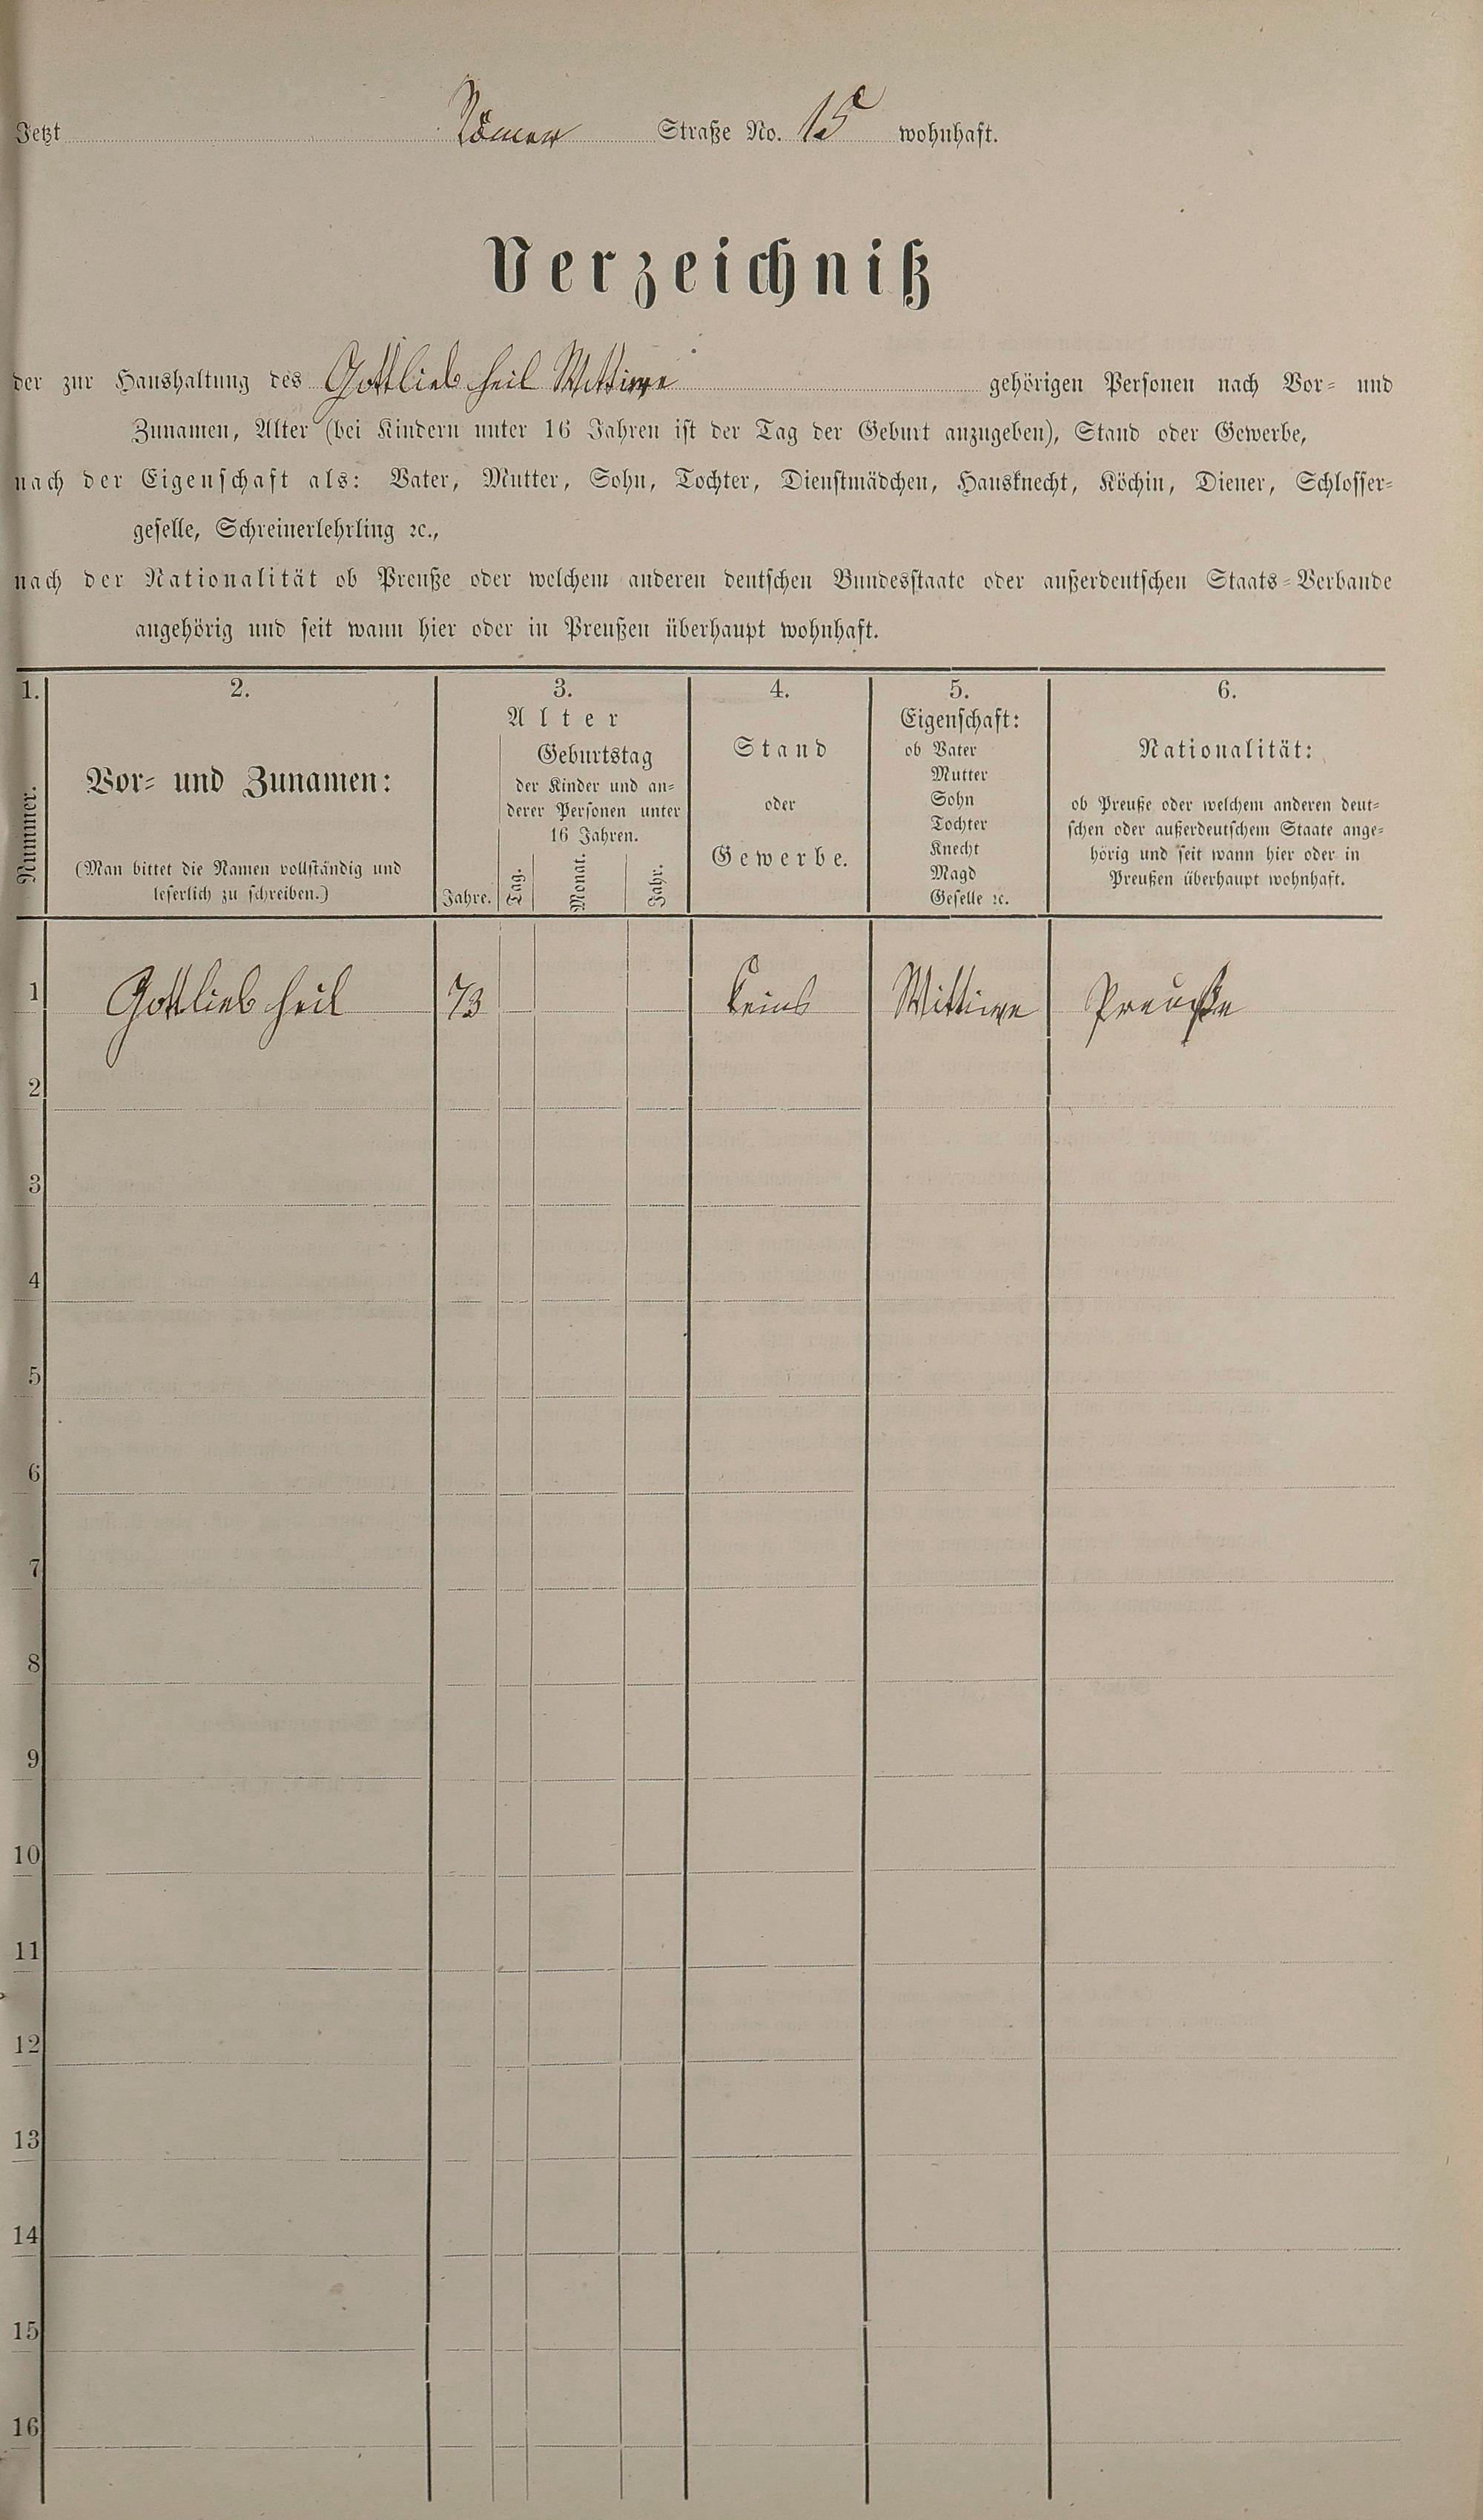 Jetzt Römer Straße No. 15 wohnhaft.
Verzeichniß
der zur Haushaltung des Gottlieb Heil Wittwe gehörigen Personen nach Vor- und
Zunamen, Alter (bei Kindern unter 16 Jahren ist der Tag der Geburt anzugeben), Stand oder Gewerbe,
nach der Eigenschaft als: Vater, Mutter, Sohn, Tochter, Dienstmädchen, Hausknecht, Köchin, Diener, Schlosser-
geselle, Schreinerlehrling ꝛc.,
nach der Nationalität ob Preuße oder welchem anderen deutschen Bundesstaate oder außerdeutschen Staats-Verbande
angehörig und seit wann hier oder in Preußen überhaupt wohnhaft.
1.
Nummer.
2.
Vor- und Zunamen:
(Man bittet die Namen vollständig und
leserlich zu schreiben.)
3.
Alter
Jahre.
Geburtstag
der Kinder und an-
derer Personen unter
16 Jahren.
Tag.
Monat.
Jahr.
4.
Stand
oder
Gewerbe.
5.
Eigenschaft:
ob Vater
Mutter
Sohn
Tochter
Knecht
Magd
Geselle ꝛc.
6.
Nationalität:
ob Preuße oder welchem anderen deut-
schen oder außerdeutschem Staate ange-
hörig und seit wann hier oder in
Preußen überhaupt wohnhaft.
1 Gottlieb Heil 73 keins Wittwe Preuße
2
3
4
5
6
7
8
9
10
11
12
13
14
15
16